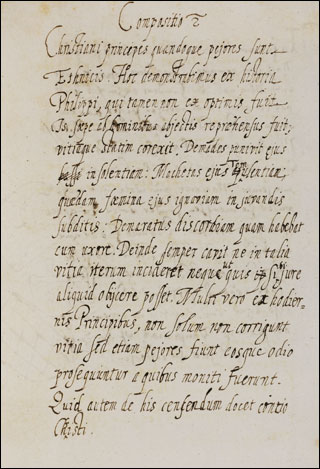 Compositio 2
Christiani principes quandoque pejores sunt
Ethnicis. Hoc demonstrabimus ex historia
Philippi, qui tamen non ex optimis fuit.
Is sæpe ab hominibus abjectis reprehensus fuit,
vitiaque statim corexit. Demades punivit ejus
insolentiam: Machetas ejus
quædam fœmina ejus ignaviam in jurandis
subditis: Demaratus discordiam quam habebat
cum uxore. Deinde semper cavit ne in talia
vitia iterum incideret neque ut quis si jure
aliquid objicere posset. Multi vero ex hodier-
nis Principibus, non solum non corrigunt
vitia sed etiam pejores fiunt eosque odio
prosequuntur a quibus moniti fuerunt.
Quid autem de his censendum docet contio
Christi.